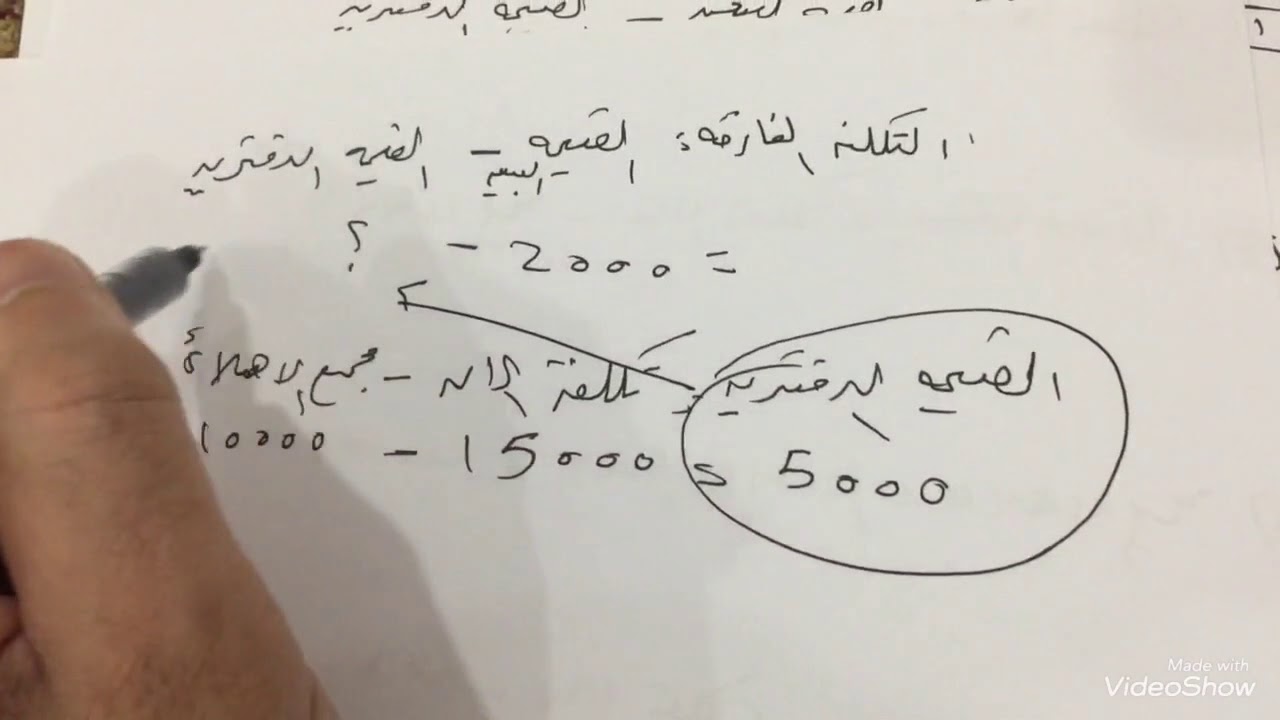 القيمه الدفتريه
التكلفه الفارقة: القيمه البيعيه - القيمه الدفتريه
= 2000 - ؟
القيمه الدفتريه = تكلفة الاله - مجمع الاهلاك
5000 = 15000 - 10000
Made with
VideoShow